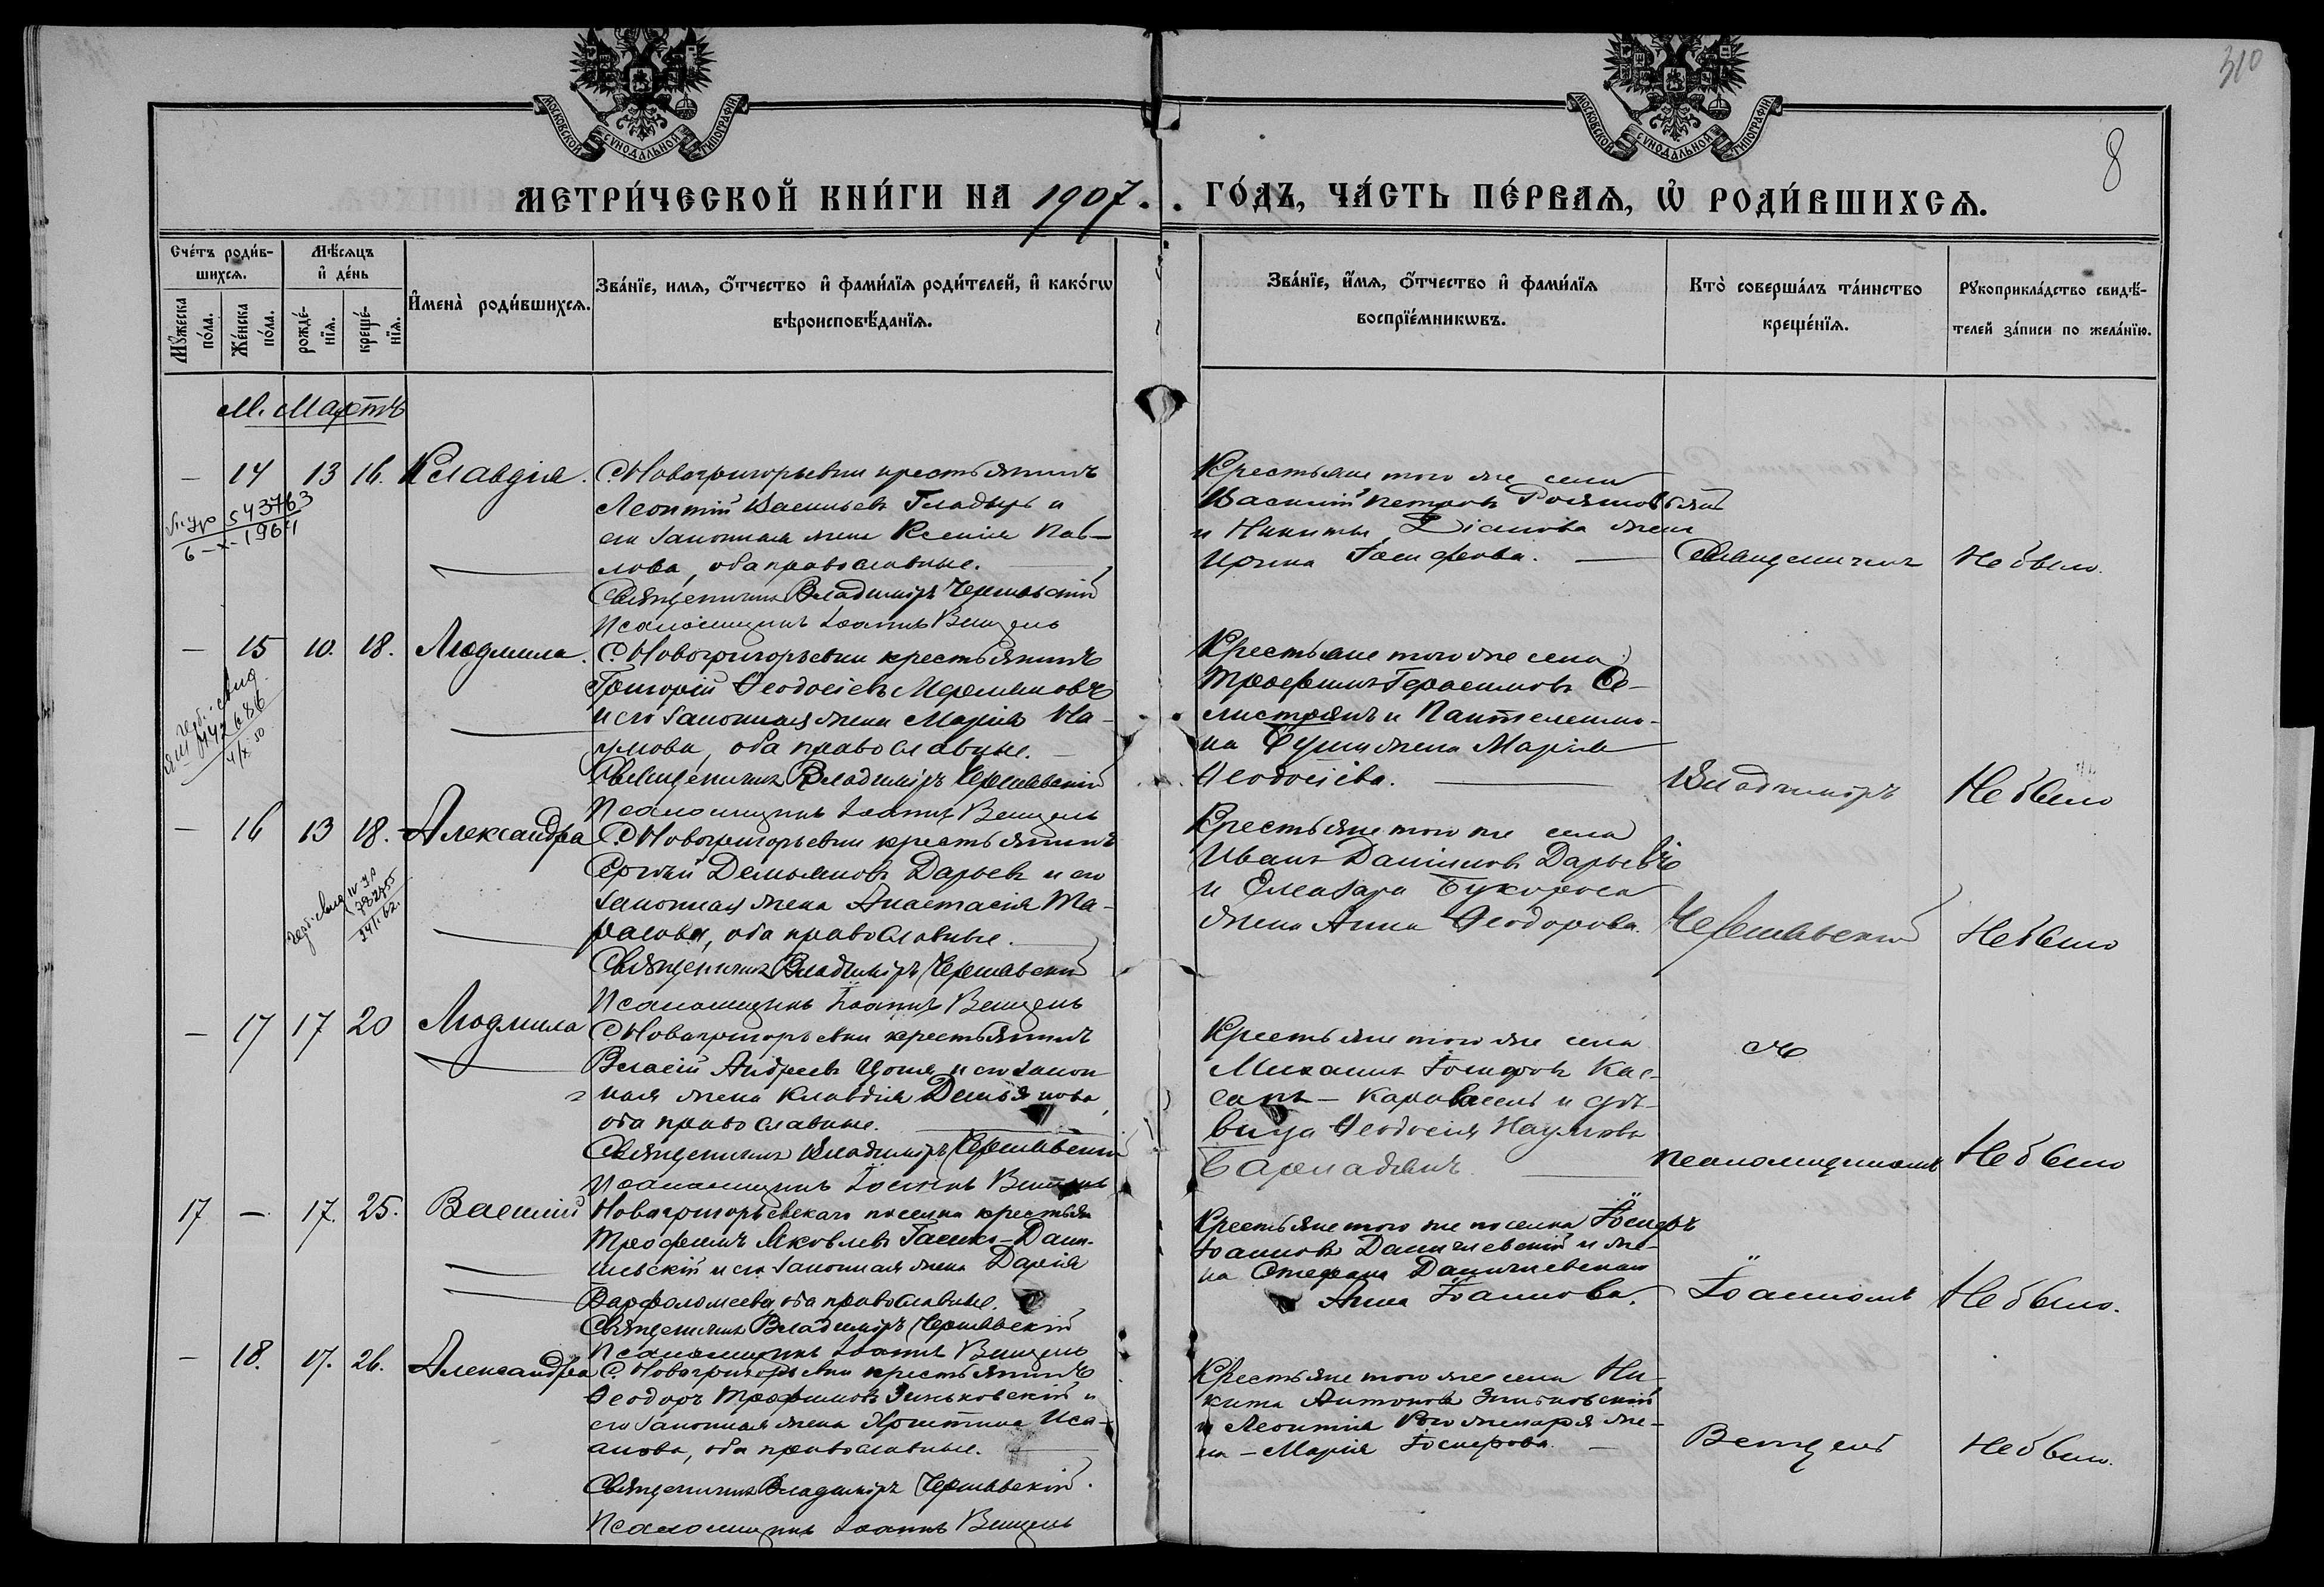 310
8
МОСКОВСКОЙ СѴНОДАЛЬНОЙ ТИПОГРАФІИ
МОСКОВСКОЙ СѴНОДАЛЬНОЙ ТИПОГРАФІИ
МЕТРИ́ЧЕСКОЙ КНИ́ГИ НА 1907. ГО́ДЪ, ЧА́СТЬ ПЕ́РВАѦ, Ѡ҆ РОДИ́ВШИХСѦ.
Сче́тъ роди́в-
шихсѧ.
Мѣ́сѧцъ
и҆ де́нь
Мꙋ́жеска по́ла.
Же́нска по́ла.
рожде́-
нїѧ.
креще́-
нїѧ.
И҆мена̀ роди́вшихсѧ.
Зва́нїе, имѧ, ѻ҆́тчество и҆ фами́лїѧ роди́телей, и҆ како́гѡ
вѣроисповѣ́данїѧ.
Зва́нїе, и҆́мѧ, ѻ҆́тчество и҆ фами́лїѧ
воспрїе́мникѡвъ.
Кто̀ соверша́лъ та́инство
креще́нїѧ.
Рꙋкоприкла́дство свидѣ́-
телей за́писи по жела́нїю.
М. Мартъ
— 14 13 16. Клавдія.
543763
6-X-1964
С. Новогригорьевки крестьянинъ
Леонтій Васильевъ Гладырь и
его законная жена Ксенія Пав-
лова, оба православные.
Священникъ Владиміръ Чернявскій
Псаломщикъ Іоаннъ Венцель
Крестьяне того же села
Василій Петровъ
и Никиты Діанова жена
Ирина Іосифова.
Священникъ
Не было.
— 15 10. 18. Людмила.
4/X 50
С. Новогригорьевки крестьянинъ
Григорій Ѳеодосіевъ Мержановъ
и его законная жена Марія На-
умова, оба православные.
Священникъ Владиміръ Чернявскій
Псаломщикъ Іоаннъ Венцель
Крестьяне того же села
Трофимъ Герасимовъ Се-
листрянъ и Пантелеимо-
на жена Марія
Ѳеодосіева.
Владиміръ
Не было
— 16 13 18. Александра
С. Новогригорьевки крестьянинъ
Сергѣй Демьяновъ Дарьевъ и его
законная жена Анастасія Та-
расова, оба православные.
Священникъ Владиміръ Чернявскій
Псаломщикъ Іоаннъ Венцель
Крестьяне того же села
Иванъ Даніиловъ Дарьевъ
и Елеазара
жена Анна Ѳеодорова.
Чернявскій
Не было
— 17 17 20 Людмила
С. Новогригорьевки крестьянинъ
Власій Андреевъ Цопа и его закон-
ная жена Клавдія Демьянова,
оба православные.
Священникъ Владиміръ Чернявскій
Псаломщикъ Іоаннъ Венцель
Крестьяне того же села
Михаилъ Іосифовъ Кас-
сапъ-Каравасель и дѣ-
вица Ѳеодосія Наумова
съ
псаломщикомъ
Не было
17 — 17. 25. Василій
Новогригорьевскаго поселка крестьян.
Трофимъ Яковлевъ Гасько-Дани-
левскій и его законная жена Дарія
Варфоломеева, оба православные.
Священникъ Владиміръ Чернявскій
Псаломщикъ Іоаннъ Венцель
Крестьяне того же поселка Іосифъ
Іоанновъ Даничевскій и же-
на Стефана Даничевскаго
Анна Іоаннова.
Іоанномъ
Не было.
— 18. 17. 26. Александра
С. Новогригорьевки крестьянинъ
Ѳеодоръ Трофимовъ Зиньковскій и
его законная жена Христина Иса-
акова, оба православные.
Священникъ Владиміръ Чернявскій.
Псаломщикъ Іоаннъ Венцель
Крестьяне того же села Ни-
кита Антоновъ Зиньковскій
и Леонтія же-
на — Марія Іосифова.
Венцель
Не было.